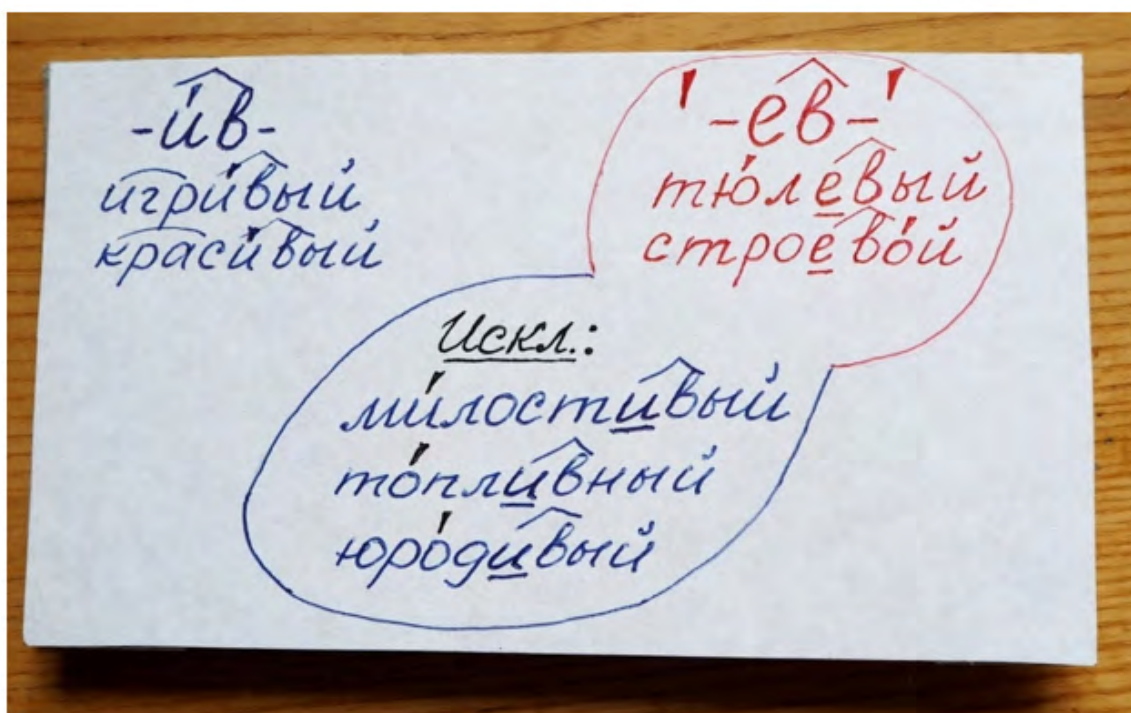 -и́в-
игри́вый
краси́вый
' -ев- '
тю́левый
строево́й
Искл.:
ми́лостивый
то́пливный
юро́дивый